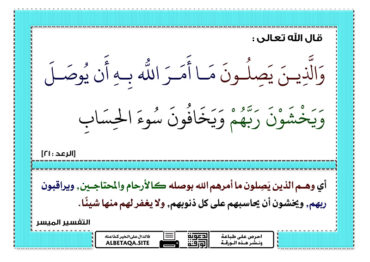 قال الله تعالى :
وَالَّذِينَ يَصِلُونَ مَا أَمَرَ اللَّهُ بِهِ أَن يُوصَلَ
وَيَخْشَوْنَ رَبَّهُمْ وَيَخَافُونَ سُوءَ الحِسَابِ
[الرعد : ٢١]
أي وهم الذين يَصِلون ما أمرهم الله بوصله كالأرحام والمحتاجين, ويراقبون
ربهم, ويخشون أن يحاسبهم على كل ذنوبهم, ولا يغفر لهم منها شيئًا.
التفسير الميسر
احرص على طباعة
ونشر هذه الورقة
فالدال على الخير كفاعله
ALBETAQA.SITE